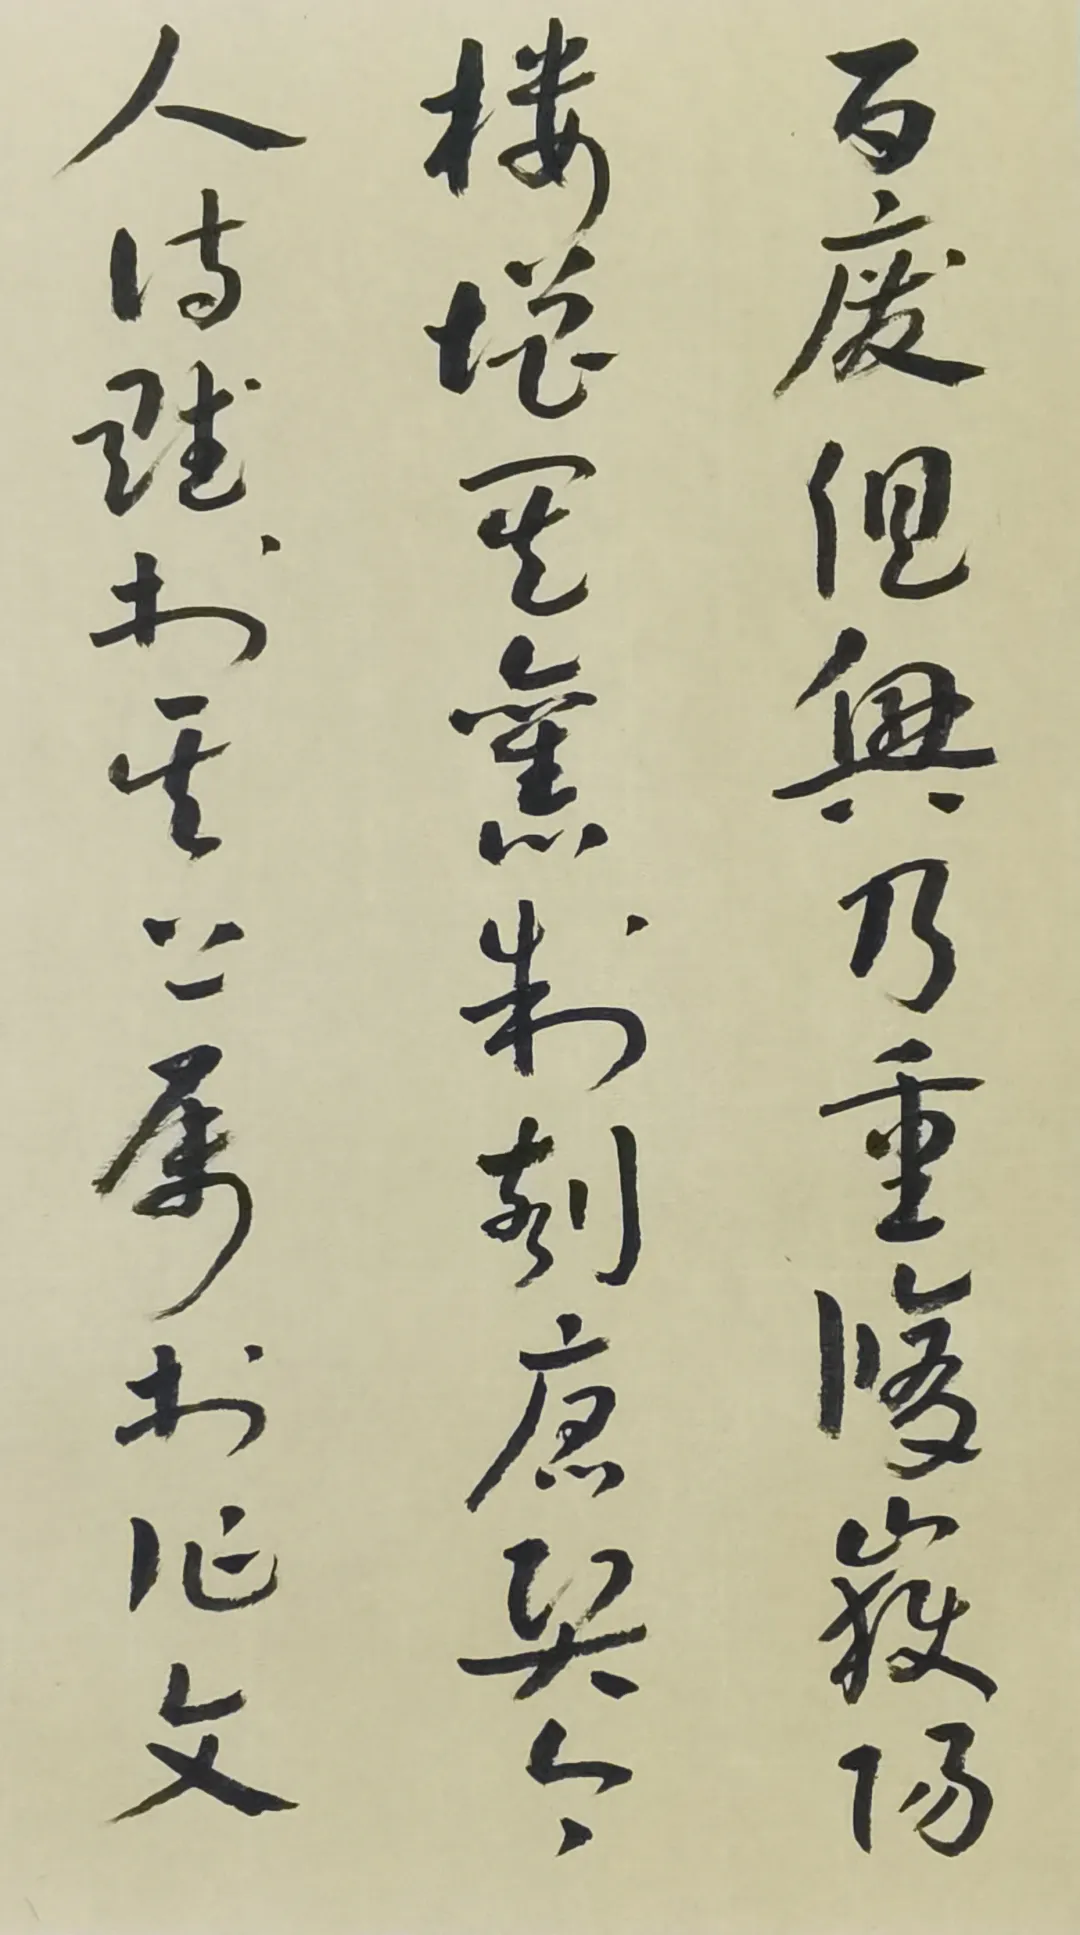 百廢俱興乃重脩嶽陽
樓增其舊制刻唐賢今
人詩賦於其上屬於作文